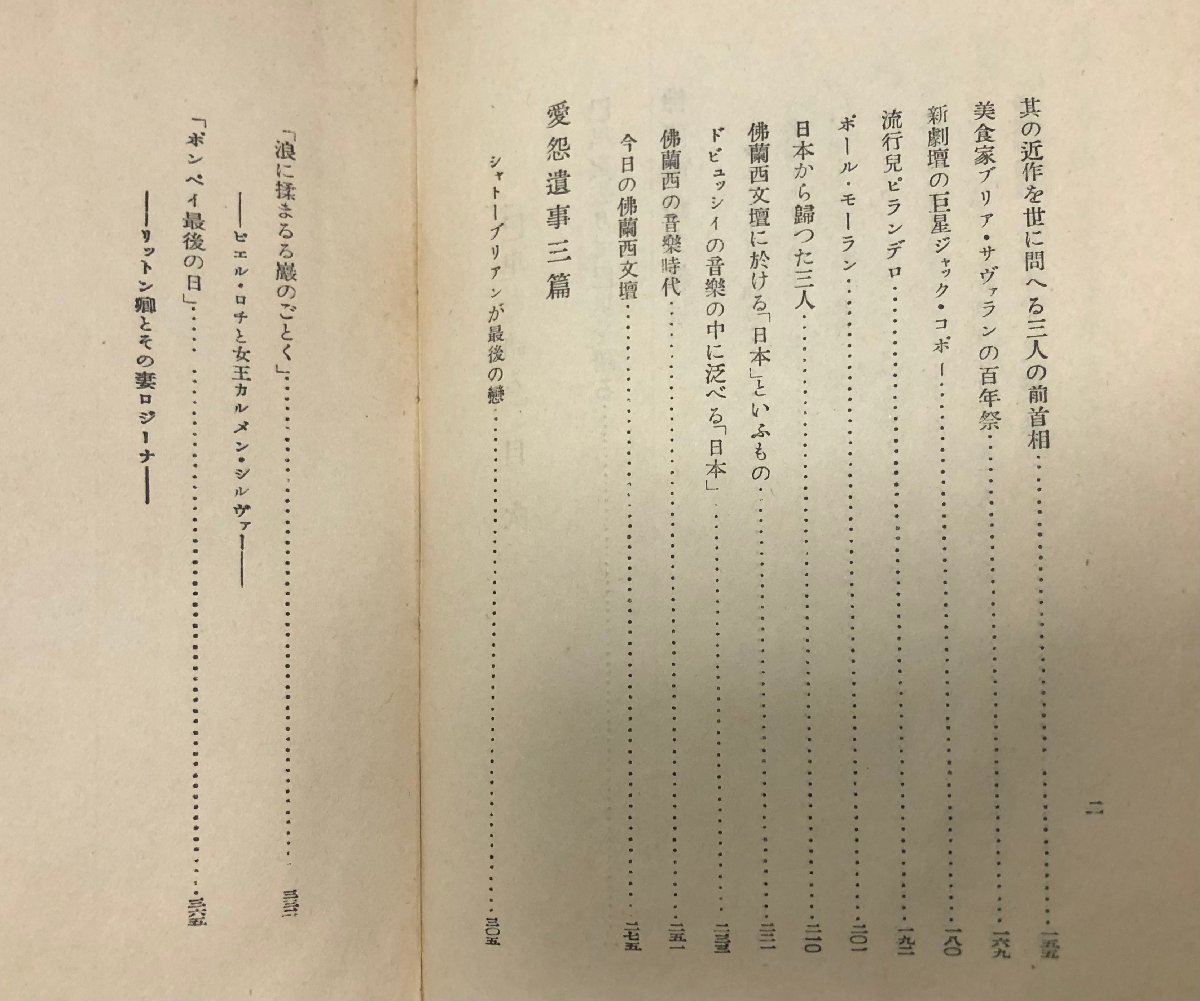 二
其の近作を世に問へる三人の前首相……一五五
美食家ブリア・サヴァランの百年祭……一六九
新劇壇の巨星ジャック・コポー……一八〇
流行兒ピランデロ……一九二
ポール・モーラン……二〇一
日本から歸つた三人……二一〇
佛蘭西文壇に於ける「日本」といふもの……二二一
ドビュッシイの音樂の中に泛べる「日本」……二三三
佛蘭西の音樂時代……二五一
今日の佛蘭西文壇……二七五
愛怨遺事三篇
シャトーブリアンが最後の戀……三〇五
「浪に揉まるる巖のごとく」……三三二
――ピエル・ロチと女王カルメン・シルヴァ――
「ポンペイ最後の日」……三六五
――リットン卿とその妻ロジーナ――